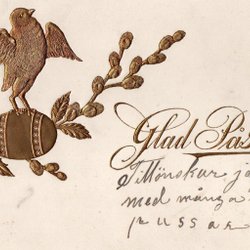 Glad Pås
Tillönskar ja
med många
pussar